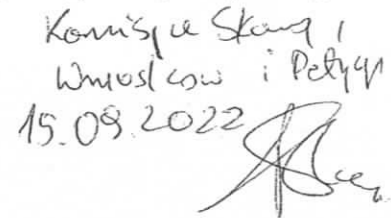 Komisja Skarg,
Wniosków i Petycji
15.09.2022